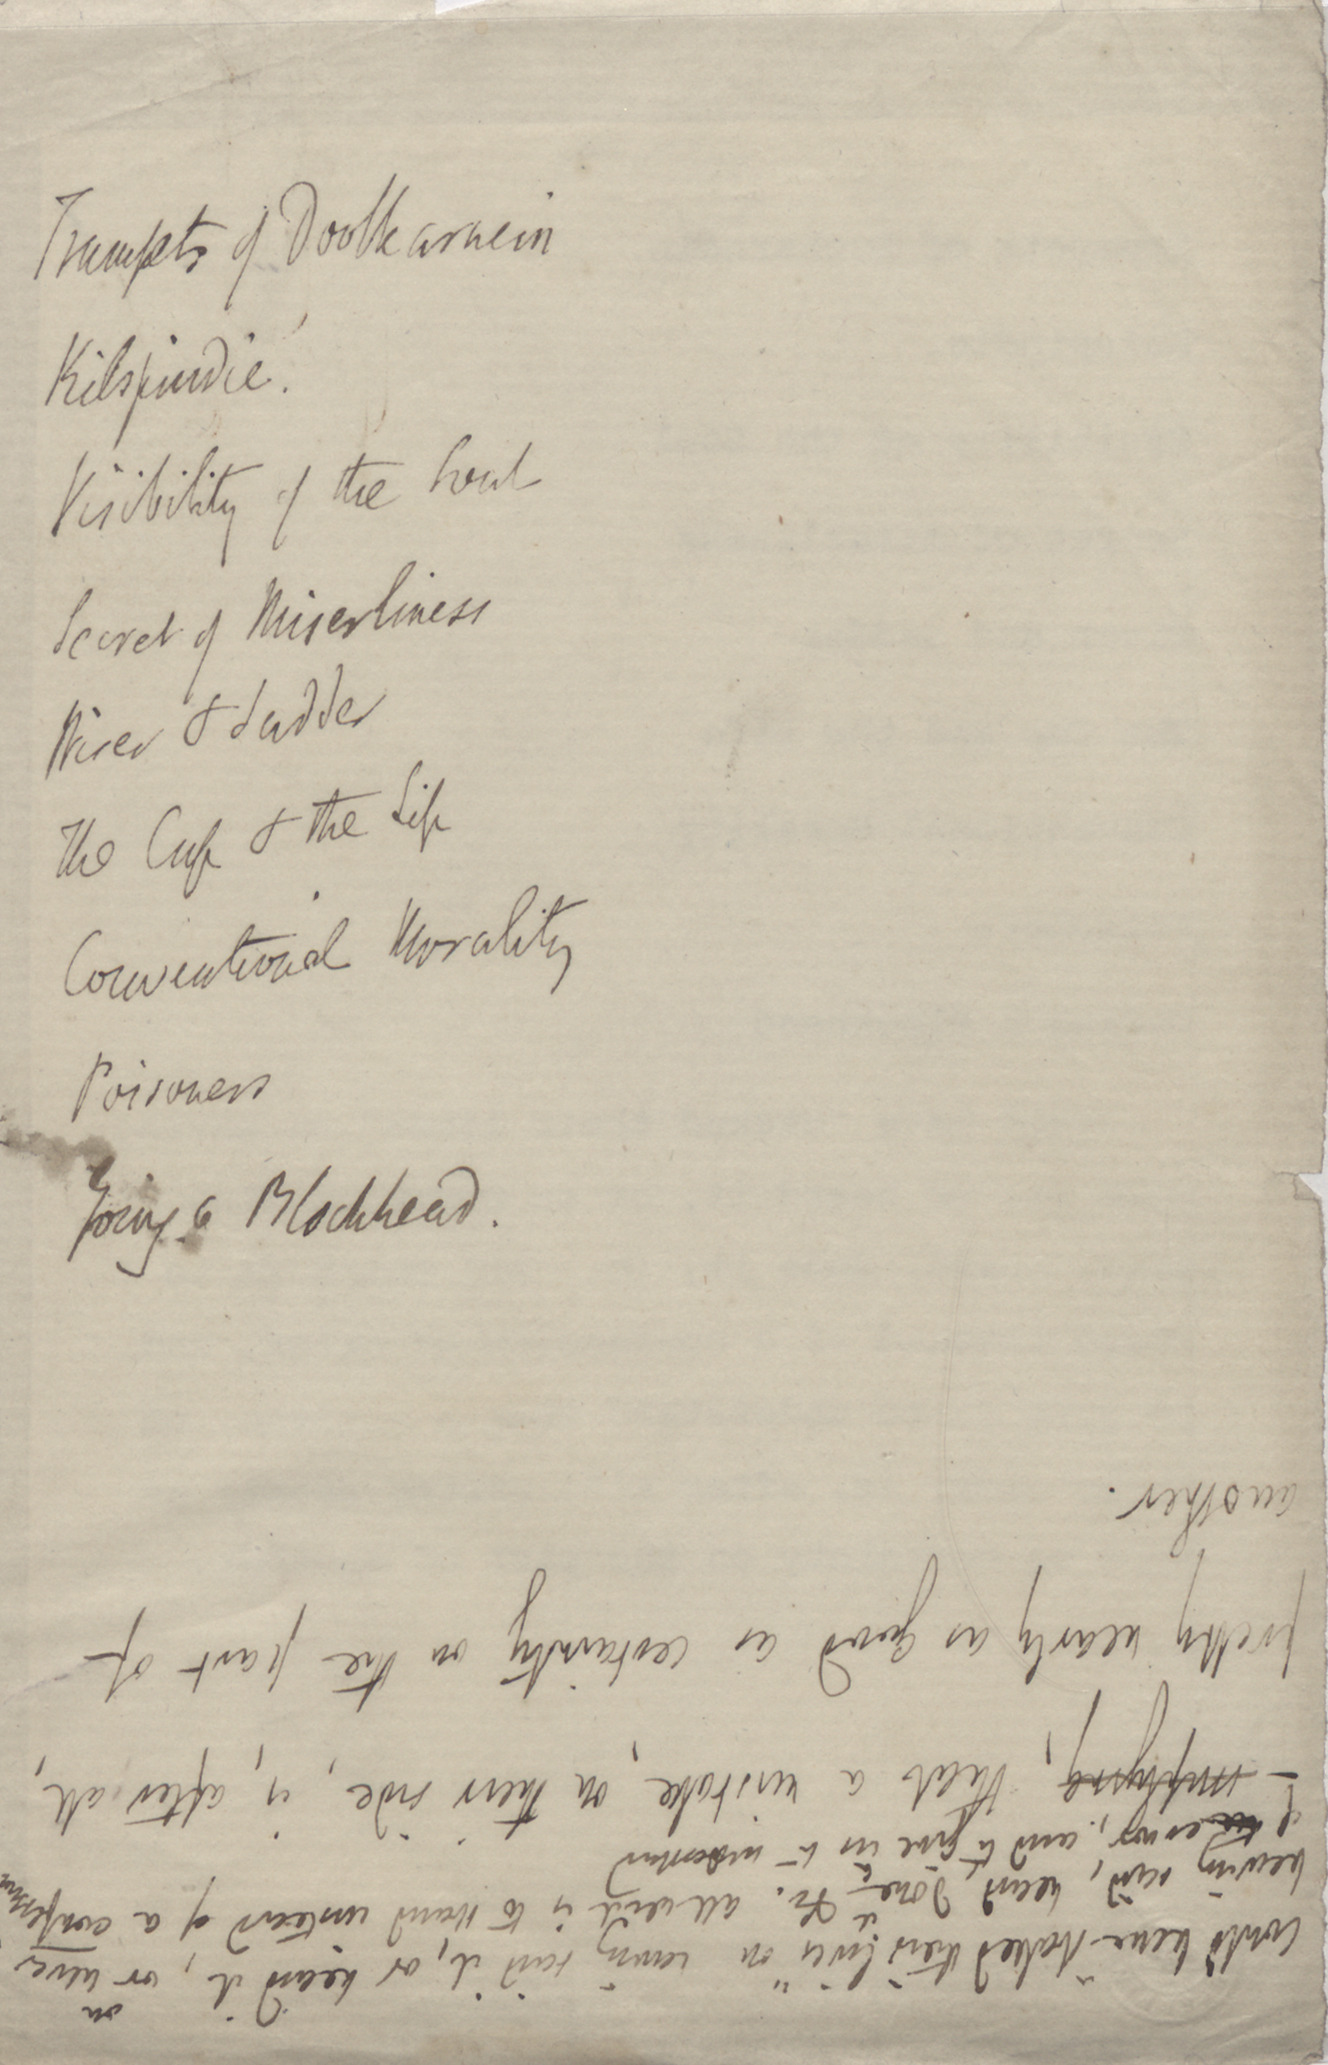 Trumpets of Doolkarnein
Kilspindie.
Visibility of the Soul
Secret of Miserliness
Miser & Ladder
The Cup & the Lip
Conventional Morality
Poisoners
a Blockhead.
would have "staked their lives" on having said it, or heard it, or never
on
having said, heard, done it, &c. all which is to stand instead of a confession
of error, and to give us to understand
implying, that a mistake, on their side, is, after all,
pretty nearly as good as certainty on the part of
another.